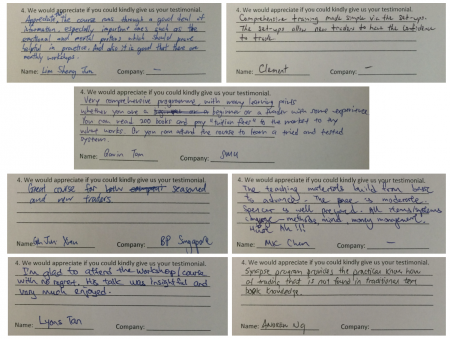 4. We would appreciate if you could kindly give us your testimonial.
Appreciate. The course runs through a good deal of
information, especially important ones such as the
emotional and mental portions which should prove
helpful in practice. And also it is good that there are
monthly workshops.
Name: Lim Sheng Company: -
4. We would appreciate if you could kindly give us your testimonial.
Comprehensive training made simple via the set-ups.
The set-ups allow new traders to have the confidence
to trade.
Name: Clement Company: -
4. We would appreciate if you could kindly give us your testimonial.
Very comprehensive programme, with many learning points
whether you are a beginner or a trader with some experience.
You can read 200 books and pay "tuition fees" to the market to try
what works. Or you can attend the course to learn a tried and tested
system.
Name: Tan Company: SMU
4. We would appreciate if you could kindly give us your testimonial.
Great course for both seasoned
and new traders
Name: Jun Company: BP Singapore
4. We would appreciate if you could kindly give us your testimonial.
The teaching materials build from basic
to advanced. The pace is moderate.
Spencer is well prepared. All items/systems
- methods, mind, money management.
Name: Mx Chen Company: -
4. We would appreciate if you could kindly give us your testimonial.
I'm glad to attend the workshop/course
with no regret. His talk was insightful and
very much enjoyed.
Name: Lyons Tan Company:
4. We would appreciate if you could kindly give us your testimonial.
Synapse program provides the practical know how
of trading that is not found in traditional text
book knowledge.
Name: Andrew Ng Company: